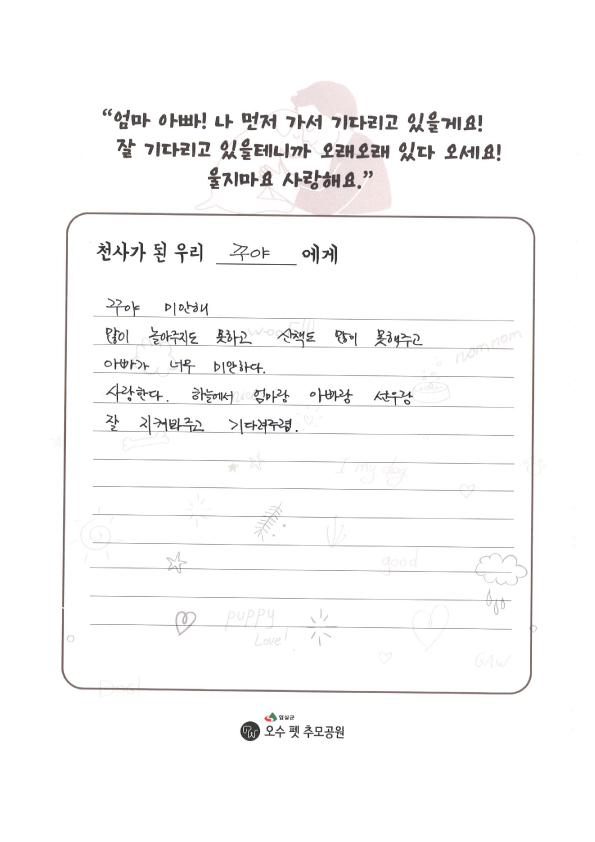 “엄마 아빠! 나 먼저 가서 기다리고 있을게요!
잘 기다리고 있을테니까 오래오래 있다 오세요!
울지마요 사랑해요.”
천사가 된 우리 꾸야 에게
꾸야 미안해
많이 놀아주지도 못하고 산책도 많이 못해주고
아빠가 너무 미안하다.
사랑한다. 하늘에서 엄마랑 아빠랑 선우랑
잘 지켜봐주고 기다려주렴.
woof!!!
nomnom
I my dog
good
puppy
Love!
임실군
오수 펫 추모공원